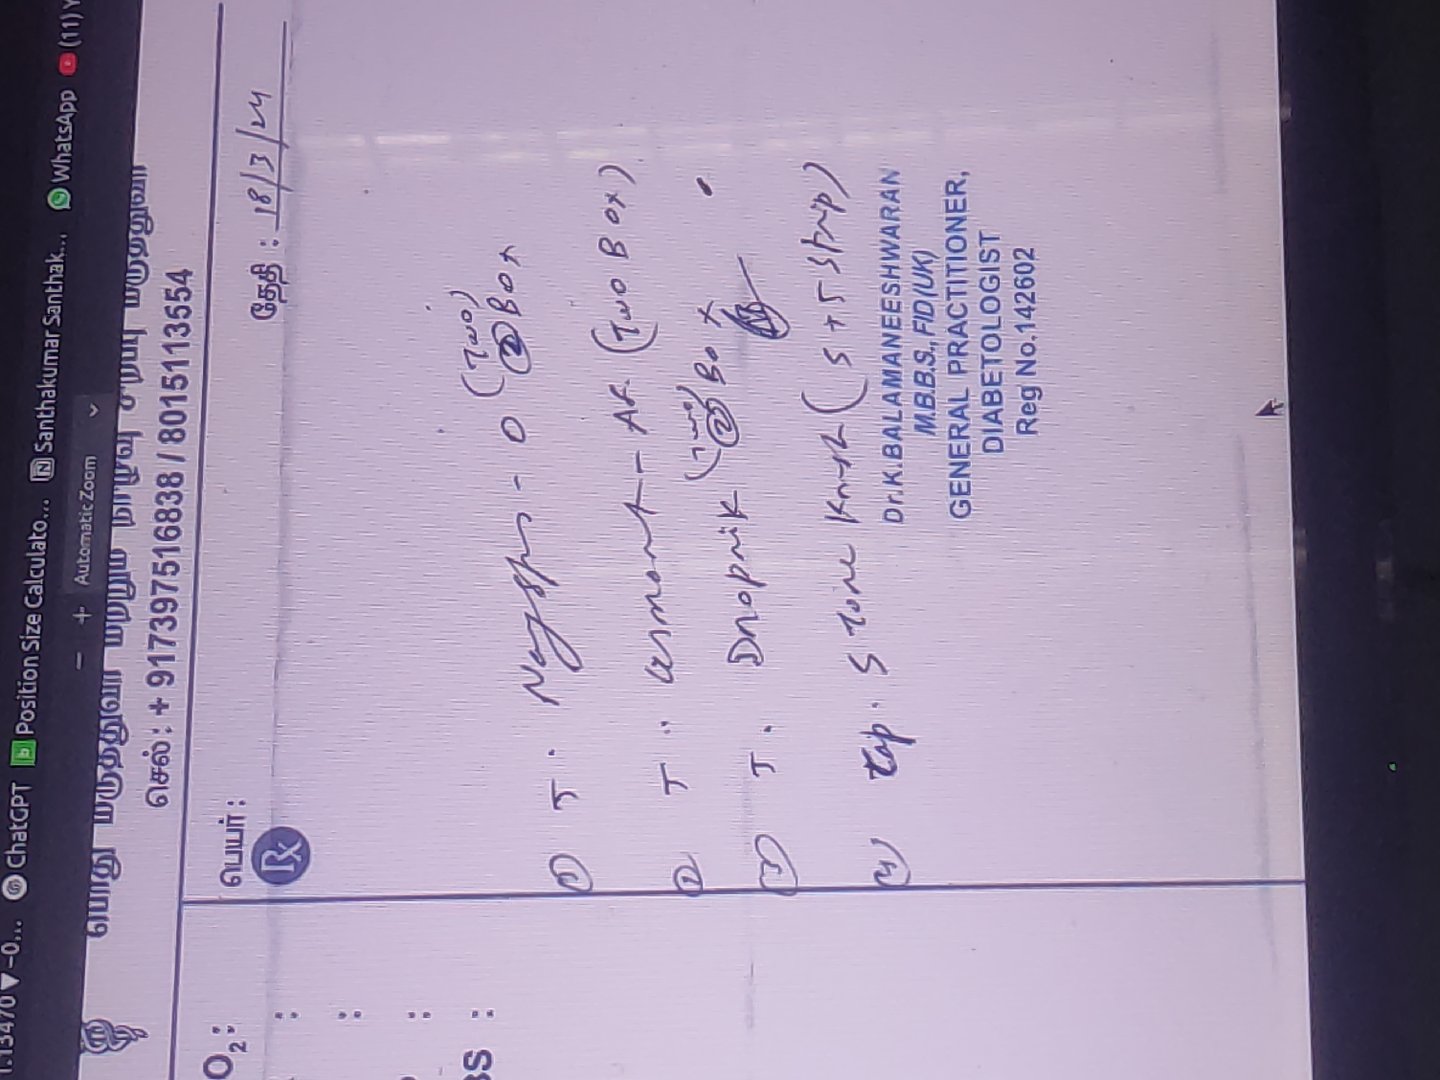 1.13470 ▼ −0... ChatGPT Position Size Calculato... Santhakumar Santhak... WhatsApp (11) Y
− + Automatic Zoom
பொது மருத்துவர் மற்றும் நீரழிவு சிறப்பு மருத்துவர்
செல் : + 917397516838 / 8015113554
O2 :
பெயர் :
தேதி : 18/3/24
Rx
:
:
:
BS :
(Two)
① T. - O ② Box
② T. - AF. (Two Box)
(Two)
③ T. Dnopnik ② Box
④ tap. Stone Krush ( 5 + 5 strip)
Dr.K.BALAMANEESHWARAN
M.B.B.S., FID(UK)
GENERAL PRACTITIONER,
DIABETOLOGIST
Reg No.142602